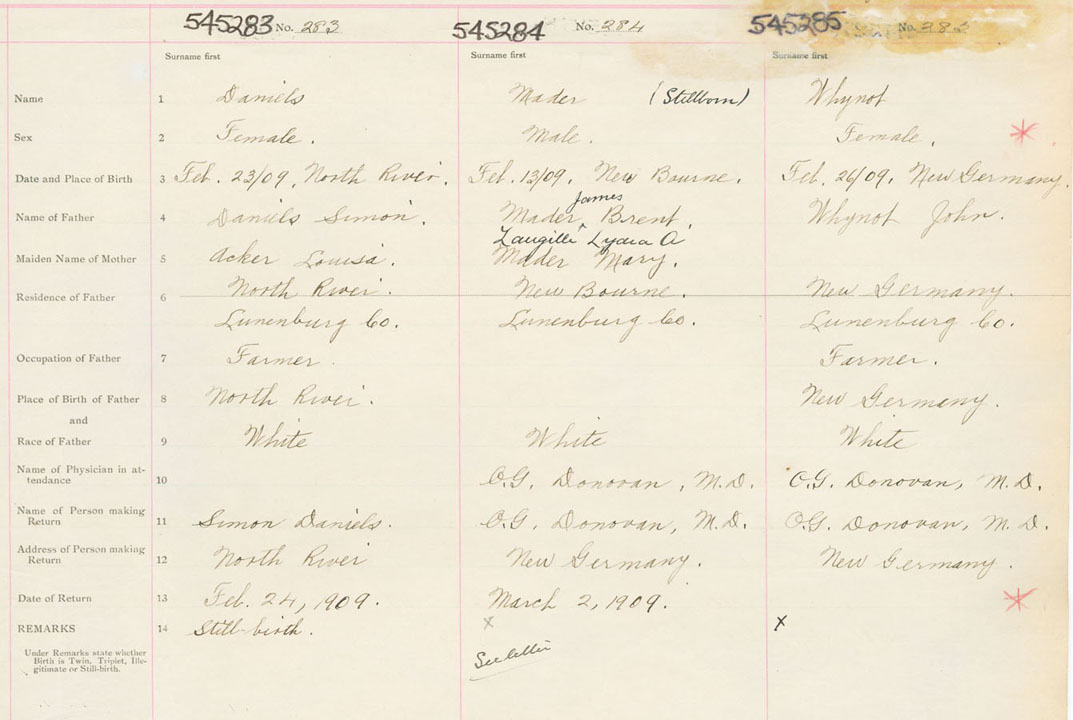 545283 No. 283 545284 No. 284 545285 No. 285
Surname first Surname first Surname first
Name 1 Daniels Mader (Stillborn) Whynot
Sex 2 Female. Male. Female.
Date and Place of Birth 3 Feb. 23/09, North River. Feb. 13/09, New Bourne. Feb. 26/09, New Germany.
James
Name of Father 4 Daniels Simon. Mader, Brent, Whynot John.
Zaugille Lydia A
Maiden Name of Mother 5 Acker Louisa. Mader Mary.
Residence of Father 6 North River. New Bourne. New Germany.
Lunenburg Co. Lunenburg Co. Lunenburg Co.
Occupation of Father 7 Farmer. Farmer.
Place of Birth of Father 8 North River. New Germany.
and
Race of Father 9 White White White
Name of Physician in at-
tendance 10 O.G. Donovan, M.D. O.G. Donovan, M.D.
Name of Person making
Return 11 Simon Daniels. O.G. Donovan, M.D. O.G. Donovan, M.D.
Address of Person making
Return 12 North River New Germany. New Germany.
Date of Return 13 Feb. 24, 1909. March 2, 1909.
REMARKS 14 Still-birth. x x
Under Remarks state whether
Birth is Twin, Triplet, Ille-
gitimate or Still-birth.
See letter